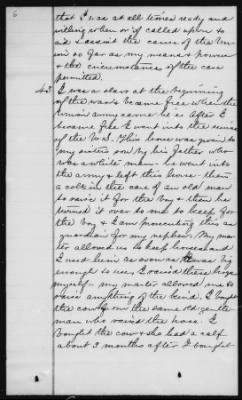 6
that I was at all times ready and
willing when or if called upon to
aid & assist the cause of the Un-
ion so far as my means & power
& the circumstances of the case
permitted.
43 I was a slave at the beginning
of the war & became free when the
union army came he as After I
became free I went into the service
of the U.S. This horse was given to
my sisters son by his father who
was a white man - he went into
the army & left this horse - then
a colt in the care of an old man
to raise it for the boy & then he
turned it over to me to keep for
the boy & I am prosecuting this as
guardian for my nephew. My mas-
ter allowed us to keep horses and
I used him as soon as he was big
enough to use, I raised these hogs
myself - my master allowed me to
raise anything of the kind. I bought
the cow from the same old gentle
man who raised the horse. I
bought the cow & she had a calf
about 3 months after I bought